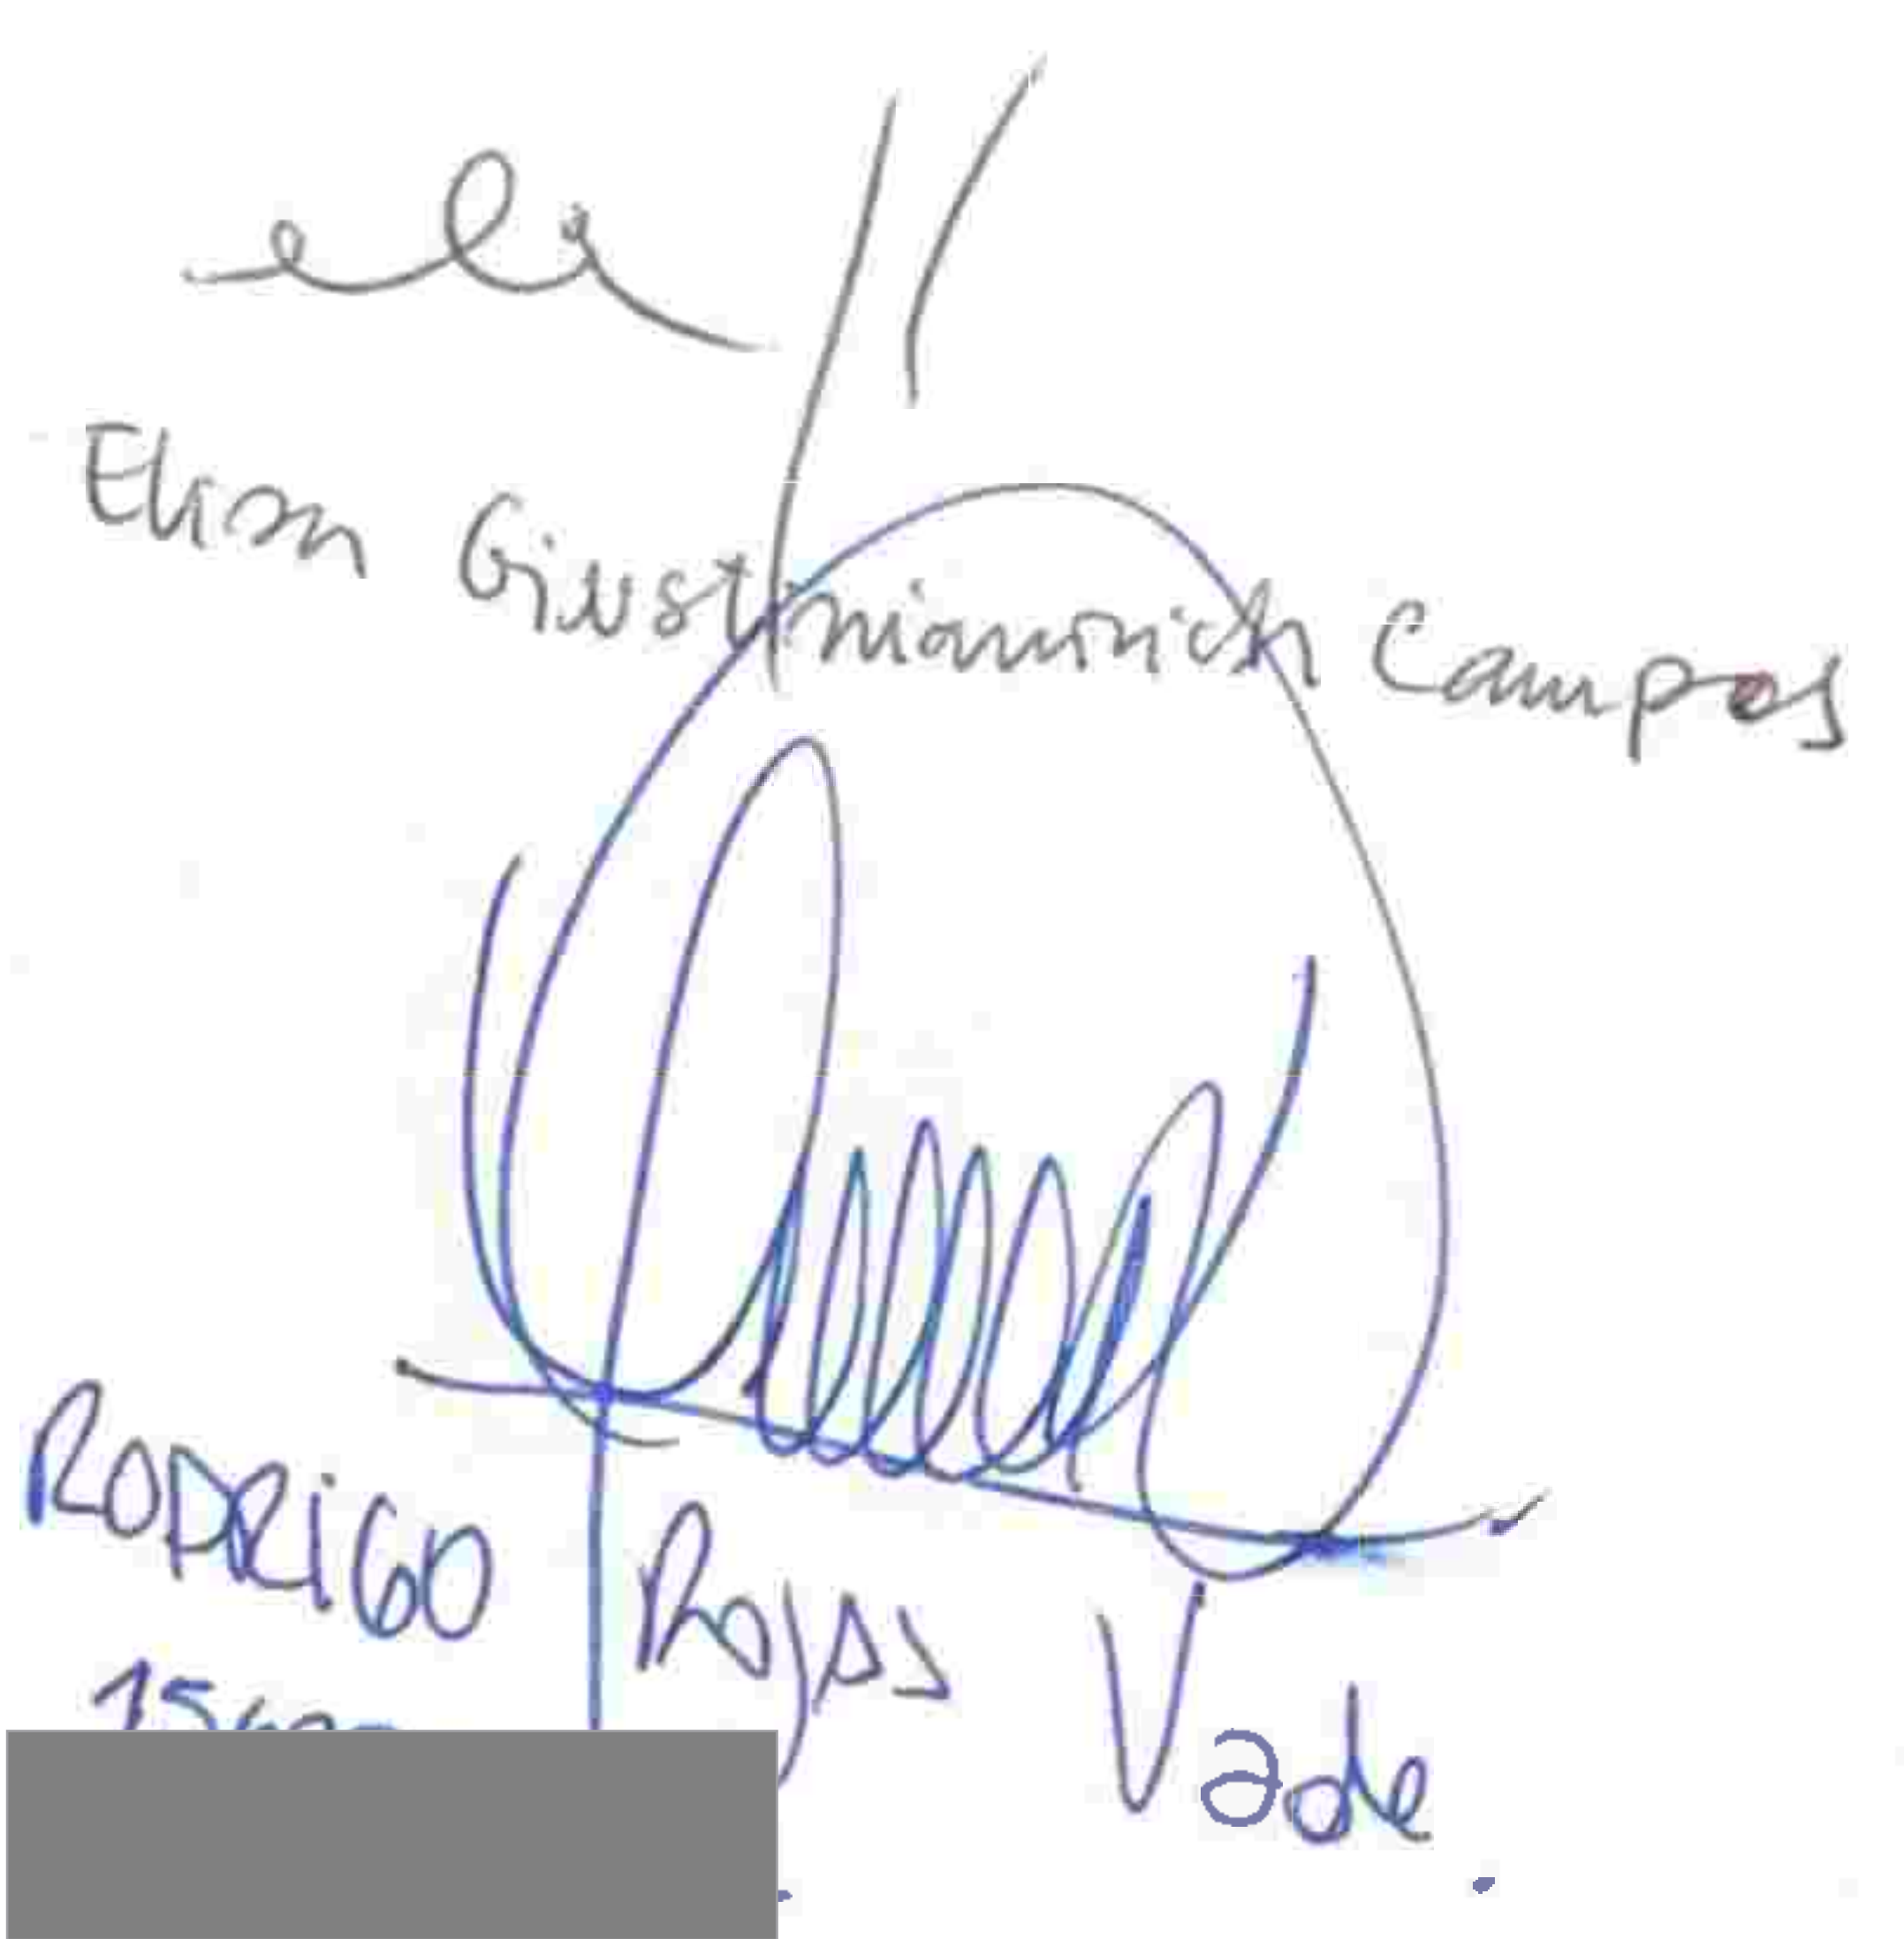 Elisa Giustinianovich Campos
RODRIGO ROJAS Vade